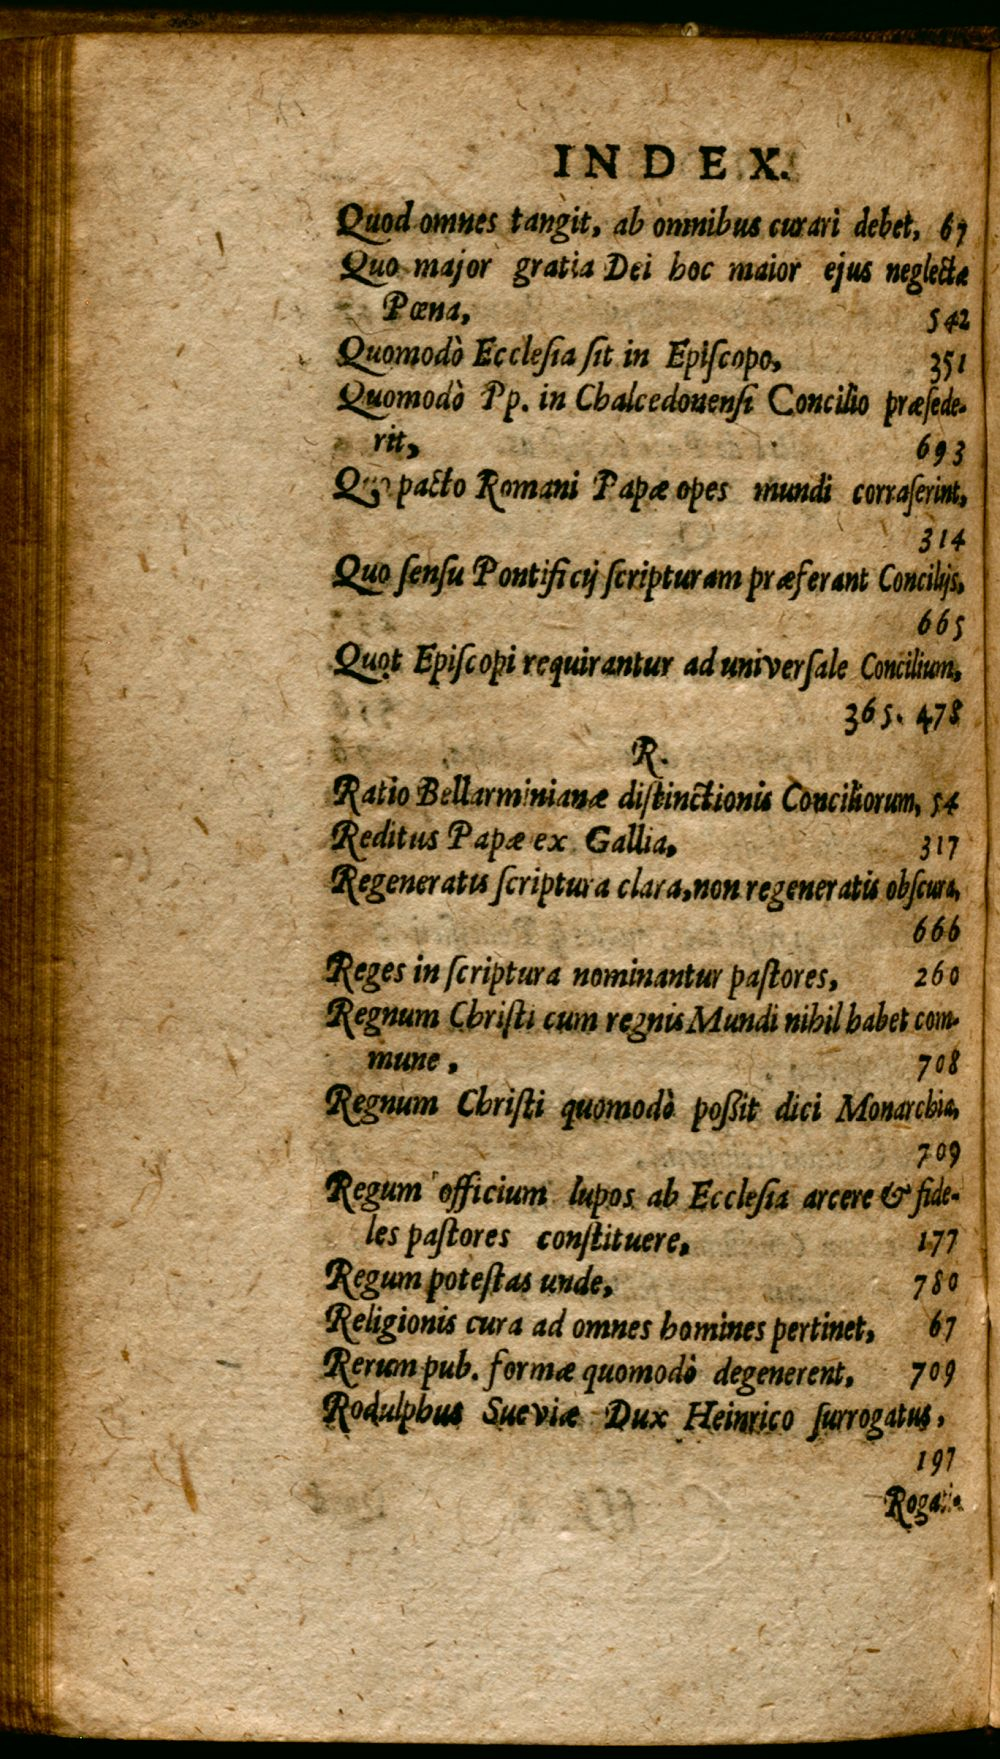 INDEX.
Quod omnes tangit, ab omnibus curari debet, 67
Quo major gratia Dei hoc maior ejus neglectæ
Pœna, 542
Quomodò Ecclesia sit in Episcopo, 351
Quomodò Pp. in Chalcedonensi Concilio præsede-
rit, 693
Quo pacto Romani Papæ opes mundi corraserint,
314
Quo sensu Pontificij scripturam præferant Concilijs,
665
Quot Episcopi requirantur ad universale Concilium,
365. 478
R.
Ratio Bellarminianæ distinctionis Conciliorum, 54
Reditus Papæ ex Gallia, 317
Regeneratis scriptura clara, non regeneratis obscura,
666
Reges in scriptura nominantur pastores, 260
Regnum Christi cum regnis Mundi nihil habet com-
mune, 708
Regnum Christi quomodò poßit dici Monarchia,
709
Regum officium lupos ab Ecclesia arcere & fide-
les pastores constituere, 177
Regum potestas unde, 780
Religionis cura ad omnes homines pertinet, 67
Rerum pub. formæ quomodò degenerent, 709
Rodulphus Sueviæ Dux Heinrico surrogatus,
197